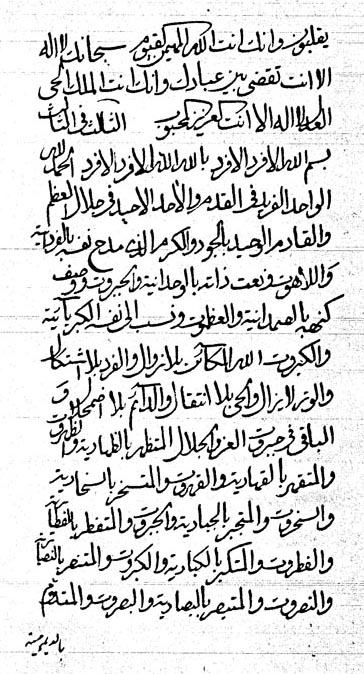 يقلبون وانك انت الله المهيمن القيوم سبحانك لا اله
الا انت تقضى بين عبادك وانك انت الملك الحى
لا اله الا انت العزيز المحبوب الثالث فى الثالث
بسم الله الافرد الافرد بالله الله الافرد الافرد الحمد لله
الواحد الفريد فى القدم والاحد الاحيد فى جلال العظم
والقادم الوحيد بالجود والكرم الذى مدح نفسه بالفردانية
واللاهوت ونعت ذاته بالوحدانية والجبروت ووصف
كنهه بالصمدانية والعظموت ونسب الى نفسه الكبريائية
والكبروت الله الكائن بلا زوال والفرد بلا اشتكال
والوتر لا يزال والحى بلا انتقال والدائم بلا اضمحلال و
الباقى فى جبروت العز والجلال المتظهر بالظهارية والظهروت
والمتقهر بالقهارية والقهروت والمتسخر بالسخارية
والسخروت والمتجبر بالجبارية والجبروت والمتفطر بالفطارية
والفطروت والمتكبر بالكبارية والكبروت والمتنصر بالنصارية
والنصروت والمتبصر بالبصارية والبصروت والمتقدم
بالديمومية